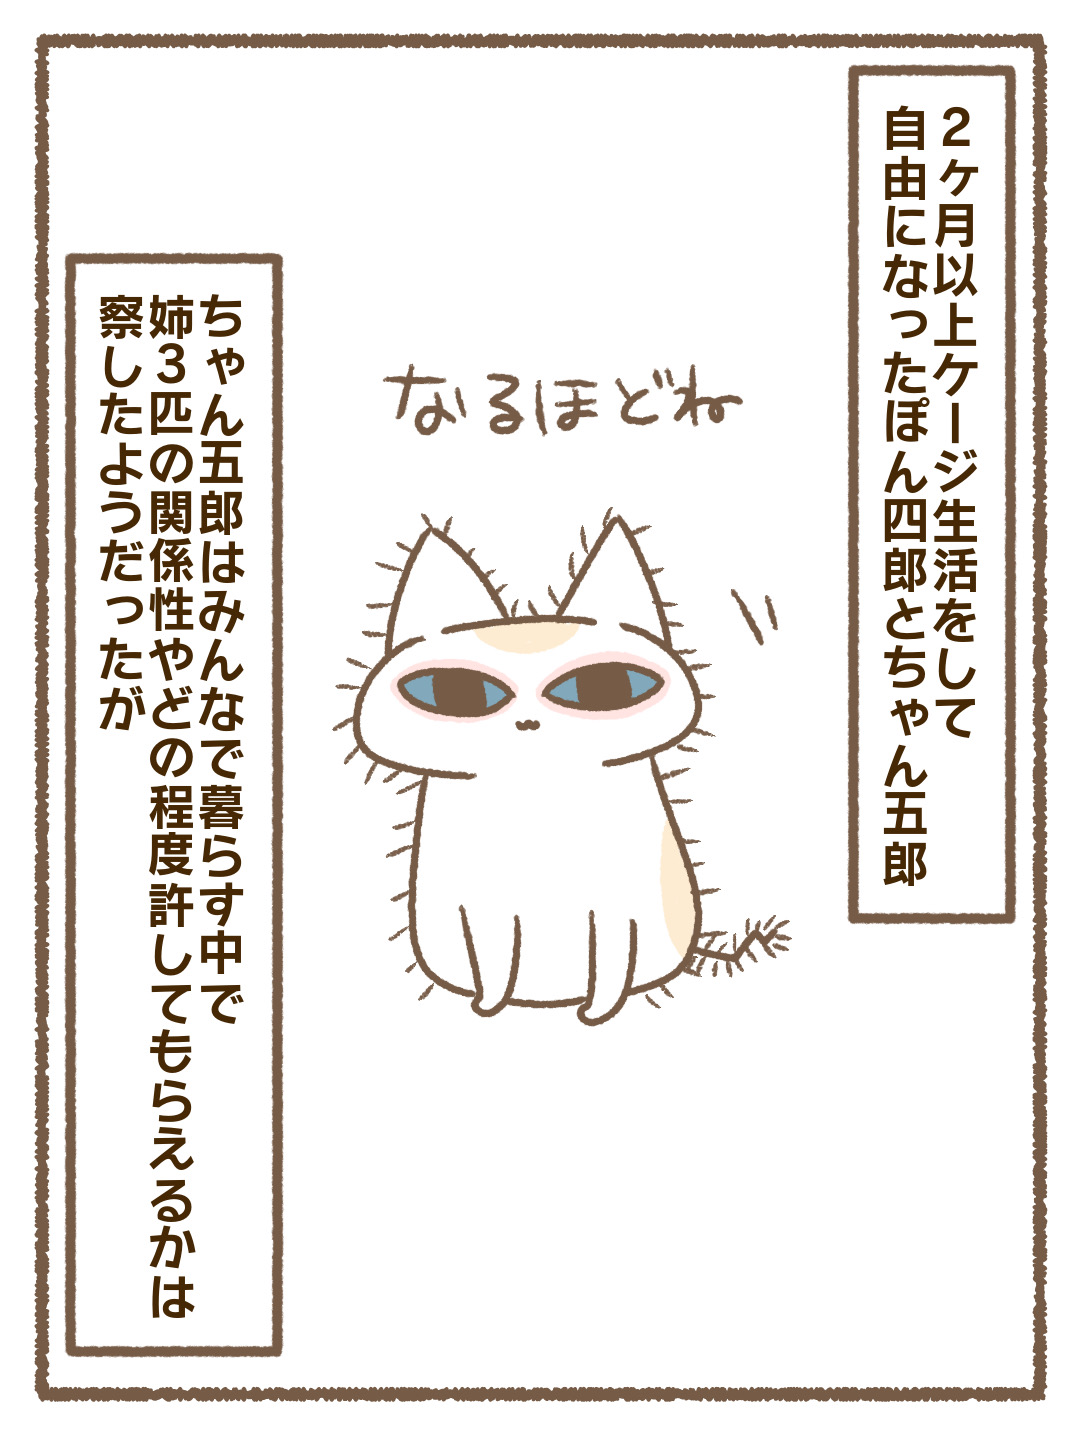 ２ヶ月以上ケージ生活をして
自由になったぽん四郎とちゃん五郎
なるほどね
ちゃん五郎はみんなで暮らす中で
姉３匹の関係性やどの程度許してもらえるかは
察したようだったが